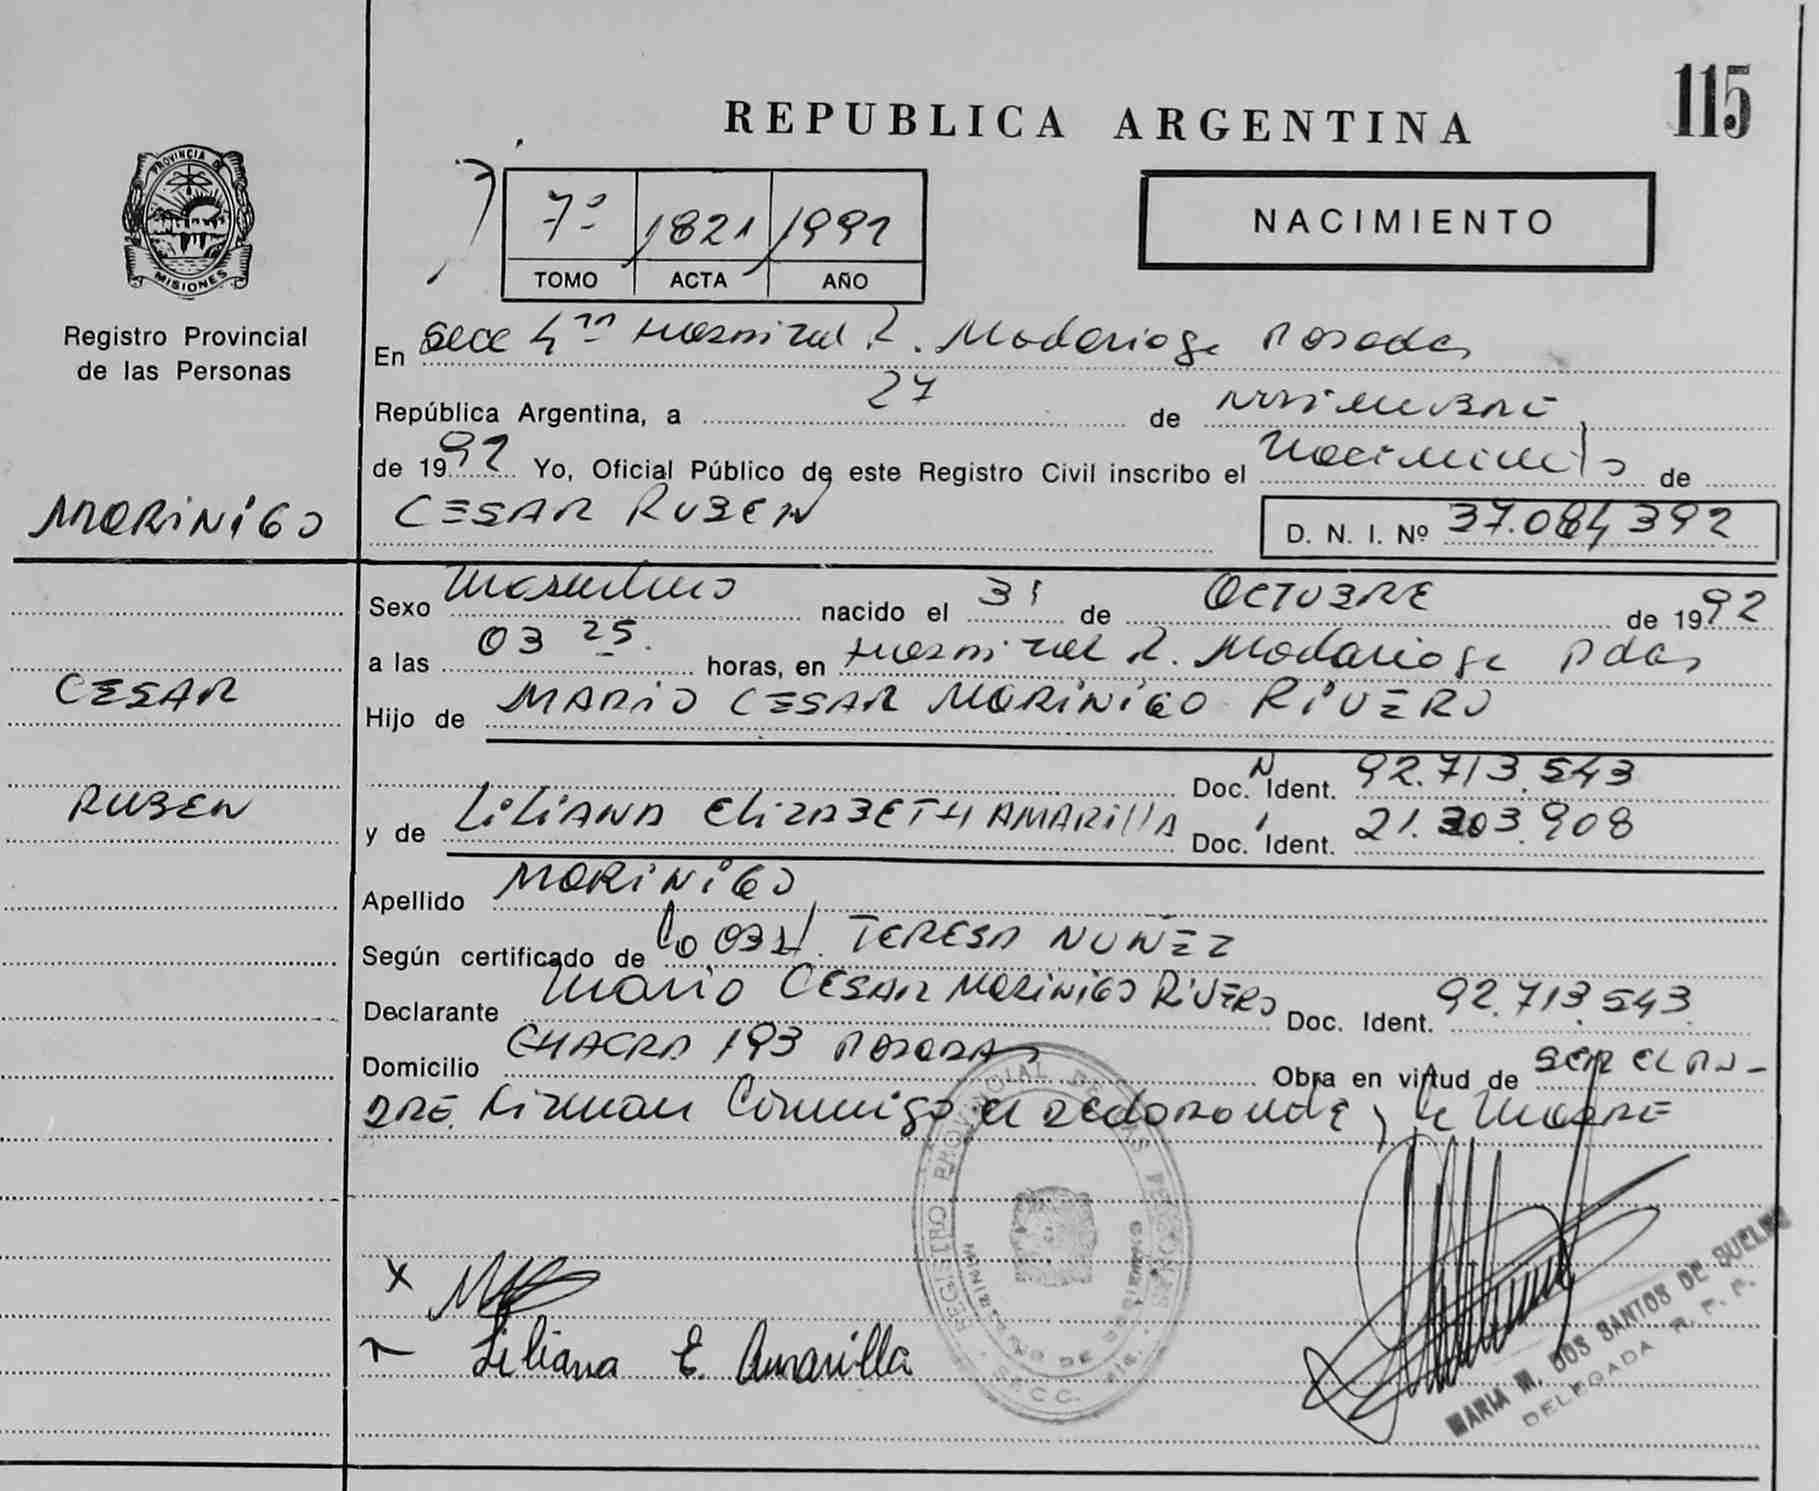 115
REPUBLICA ARGENTINA
PROVINCIA DE
MISIONES
7º 1821 1992
TOMO ACTA AÑO
NACIMIENTO
Registro Provincial
de las Personas
En Secc 4ta Hospital R. Madariaga Posadas
República Argentina, a 27 de NOVIEMBRE
de 1992 Yo, Oficial Público de este Registro Civil inscribo el Nacimiento de
MORINIGO CESAR RUBEN D. N. I. Nº 37.084392
Sexo Masculino nacido el 31 de OCTUBRE de 1992
a las 03 25. horas, en Hospital R. Madariaga Pdas
CESAR
Hijo de MARIO CESAR MORINIGO RIVERO
Doc. N Ident. 92.713.543
RUBEN
y de LILIANA ELIZABETH AMARILLA Doc. Ident. 21.303.908
Apellido MORINIGO
Según certificado de TERESA NUÑEZ
Declarante Mario CESAR MORINIGO RIVERO Doc. Ident. 92.713.543
Domicilio CHACRA 193 POSADAS Obra en virtud de SER EL PA-
DRE. Firman Conmigo el declarante y la MADRE
x
Liliana E. Amarilla
REGISTRO PROVINCIAL DE LAS PERSONAS
MINISTERIO DE
SECC.
MARIA M. DOS SANTOS DE BUELNO
DELEGADA R. P. P.